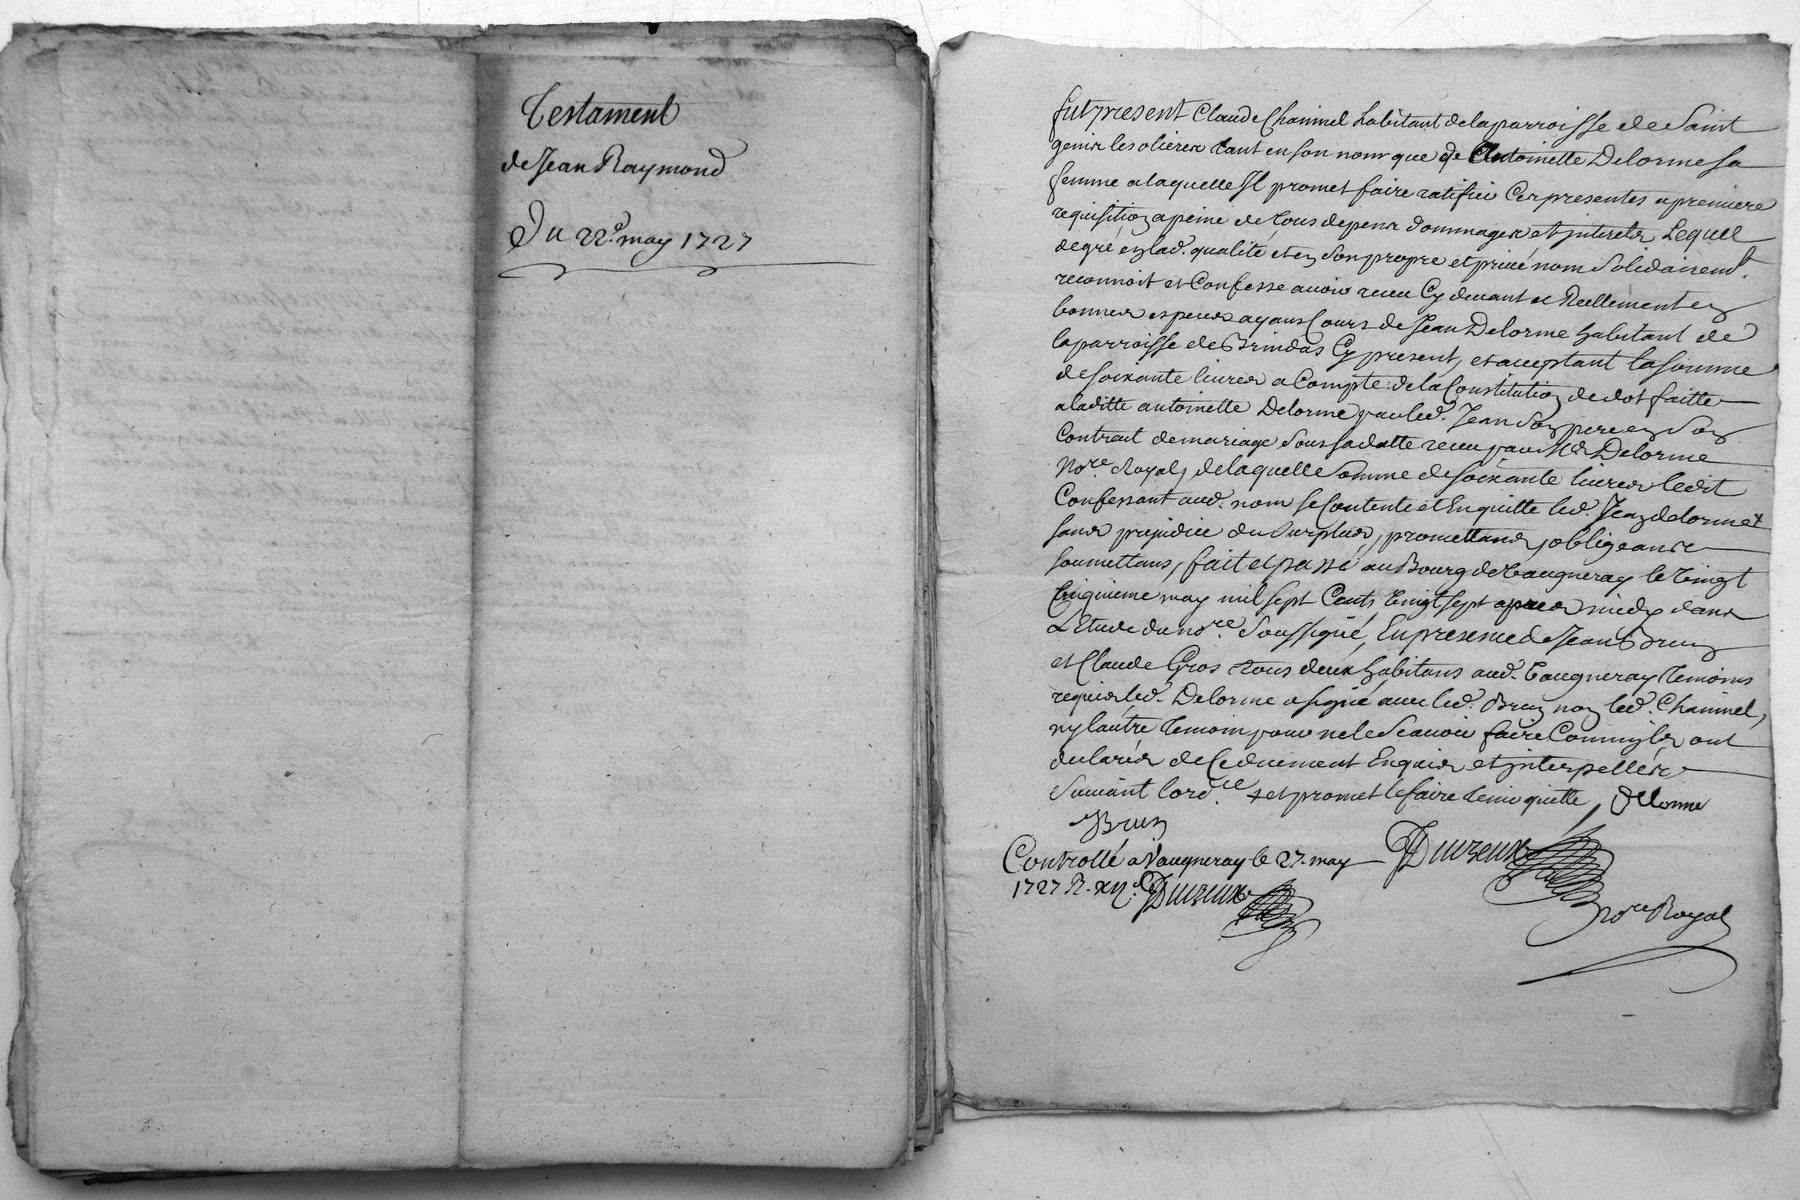 Testament
de Jean Raymond
Du 22e. may 1727
fut present Claude Chaninel habitant de la parroisse de Saint
genis les olieres tant en son nom que de Antoinette Delorme sa
femme a laquelle Il promet faire ratifier Ces presentes a premiere
requisition a peine de tous depens dommages et interets Lequel
de gré en lad. qualité et en son propre et privé nom solidairemt.
reconnoit et Confesse avoir receu Cy devant et Reellement en
bonnes especes ayans Cours de Jean Delorme habitant de
la parroisse de Brindas Cy present, et acceptant la somme
de soixante livres a Compte de la Constitution de dot faitte
a laditte antoinette Delorme par led. Jean son pere en son
Contract de mariage sous sa datte receu par Me Delorme
Nore. Royal, de laquelle somme de soixante livres ledit
Confessant aud. nom se Contente et En quitte led. Jean delorme +
sans prejudice du surplus, promettans, obligeans
soumettans, fait et passé au Bourg de Vaugneray le vingt
Cinquieme may mil sept Cents vingt sept apres midy dans
L'Etude du nore. soussigné, En presence de Jean Brun
et Claude Gros tous deux habitans aud. Vaugneray temoins
requis led. Delorme a signé avec led. Brun non led. Chaninel,
ny lautre temoin pour ne le scavoir faire Comm'ils ont
declarés de Ce duement Enquis et interpellés
suivant lordce. + et promet le faire tenir quitte, Dellorme
Brun
Controllé a Vaugneray le 27. may
1727 R. xii s. Duvreux
Duvreux
Nore Royal